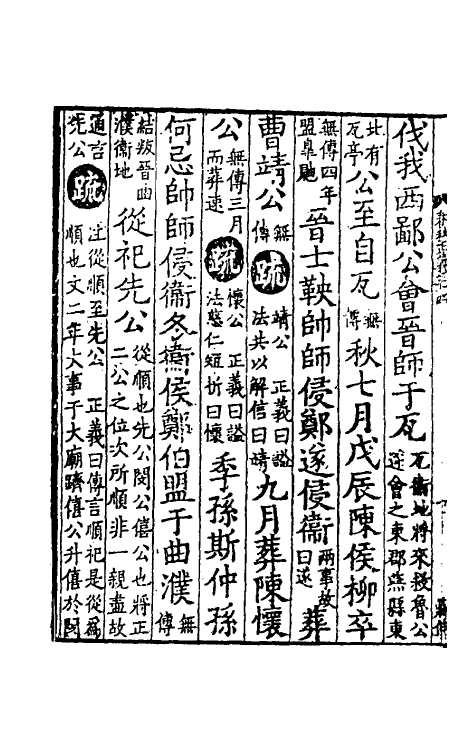 伐我西鄙公會晉師于瓦瓦衛地將來救魯公逆會之東郡燕縣東
北有瓦亭公至自瓦無傳秋七月戊辰陳侯柳卒
無傳四年盟臯鼬晉士鞅帥師侵鄭遂侵衛兩事故曰遂葬
曹靖公無傳疏靖公 正義曰謚法共以解信曰靖九月葬陳懷
公無傳三月而葬速疏懷公 正義曰謚法慈仁短折曰懷季孫斯仲孫
何忌帥師侵衛冬衛侯鄭伯盟于曲濮無傳
結叛晉曲濮衛地從祀先公從順也先公閔公僖公也將正二公之位次所順非一親盡故
通言先公疏注從順至先公 正義曰傳言順祀是從爲順也文二年大事于大廟躋僖公升僖於閔